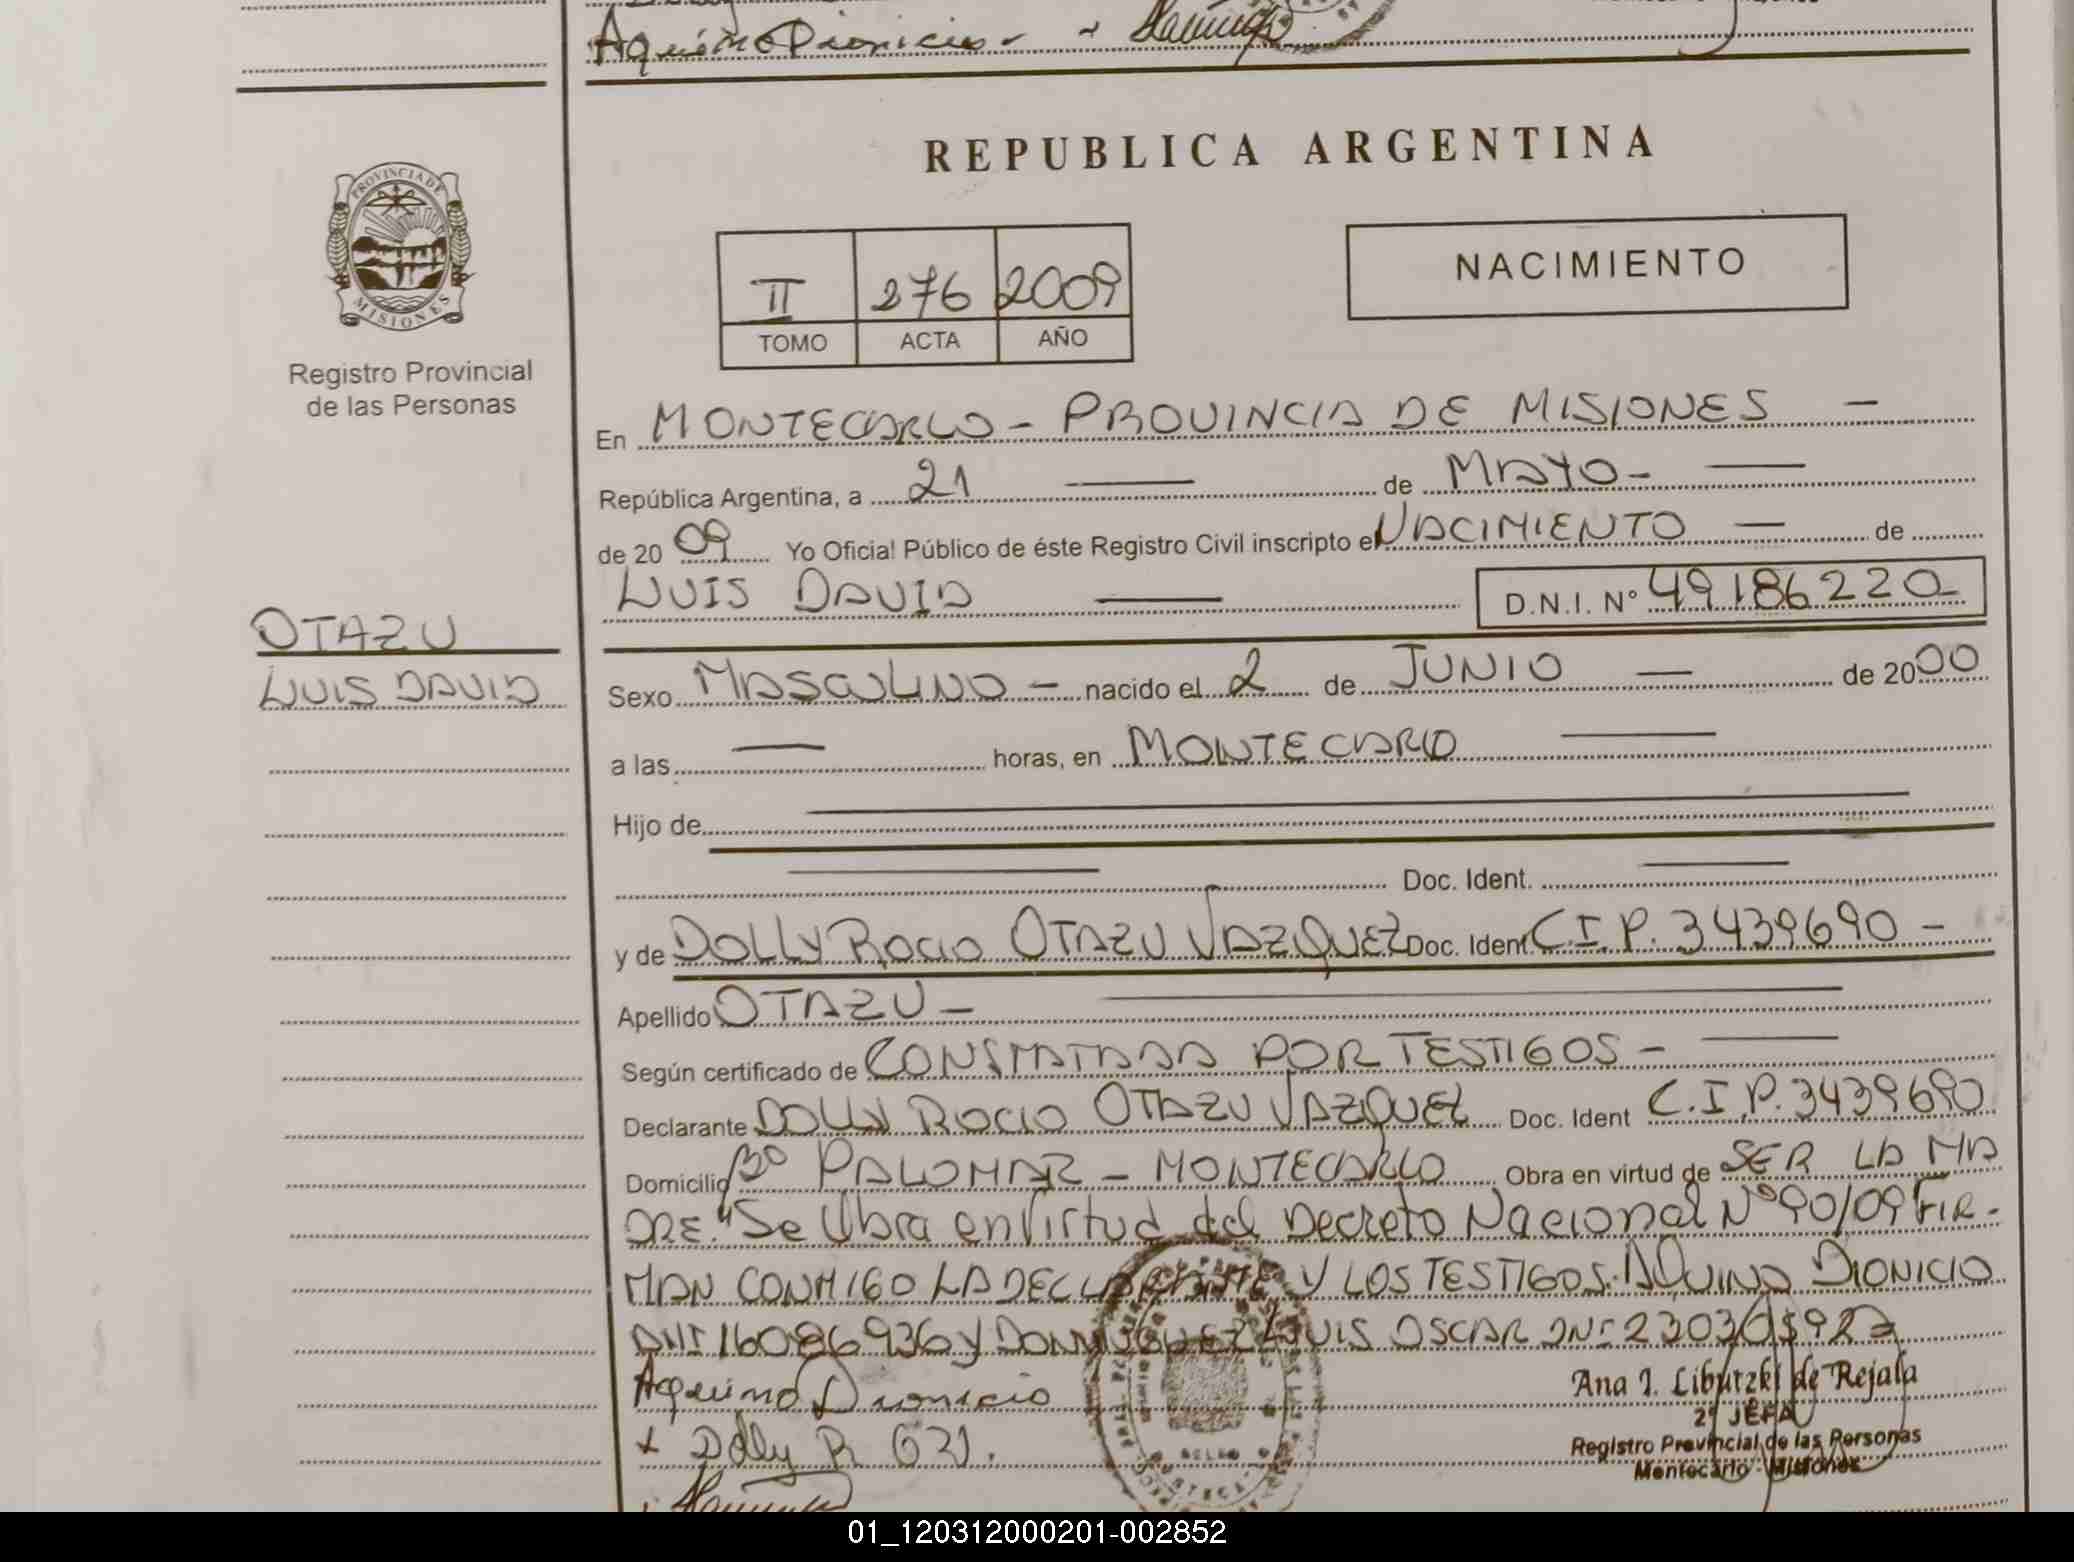 Aquino Dionicio
REPUBLICA ARGENTINA
PROVINCIA DE
MISIONES
Registro Provincial
de las Personas
NACIMIENTO
II 276 2009
TOMO ACTA AÑO
En MONTECARLO - PROVINCIA DE MISIONES -
República Argentina, a 21 — de MAYO - —
de 2009 Yo Oficial Público de éste Registro Civil inscripto el NACIMIENTO — de
LUIS DAVID — D.N.I. Nº 49186220
OTAZU
LUIS DAVID
Sexo MASCULINO - nacido el 2 de JUNIO — de 2000
a las — horas, en MONTECARLO —
Hijo de —
— Doc. Ident. —
y de DOLLY ROCIO OTAZU VAZQUEZ Doc. Ident. C.I.P. 3439690 -
Apellido OTAZU - —
Según certificado de CONSTATADA POR TESTIGOS - —
Declarante DOLLY ROCIO OTAZU VAZQUEZ Doc. Ident C.I.P. 3439690
Domicilio Bº PALOMAR - MONTECARLO Obra en virtud de SER LA MA
DRE. "Se Obra en Virtud del Decreto Nacional Nº 90/09 FIR-
MAN CONMIGO LA DECLARANTE Y LOS TESTIGOS. AQUINO DIONICIO
DNI 16086936 y DOMINGUEZ LUIS OSCAR DNI
Aquino Dionicio
Ana I. Libutzki de Rejala
2º JEFA
Registro Provincial de las Personas
Montecarlo - Misiones
x Dolly R
01_120312000201-002852